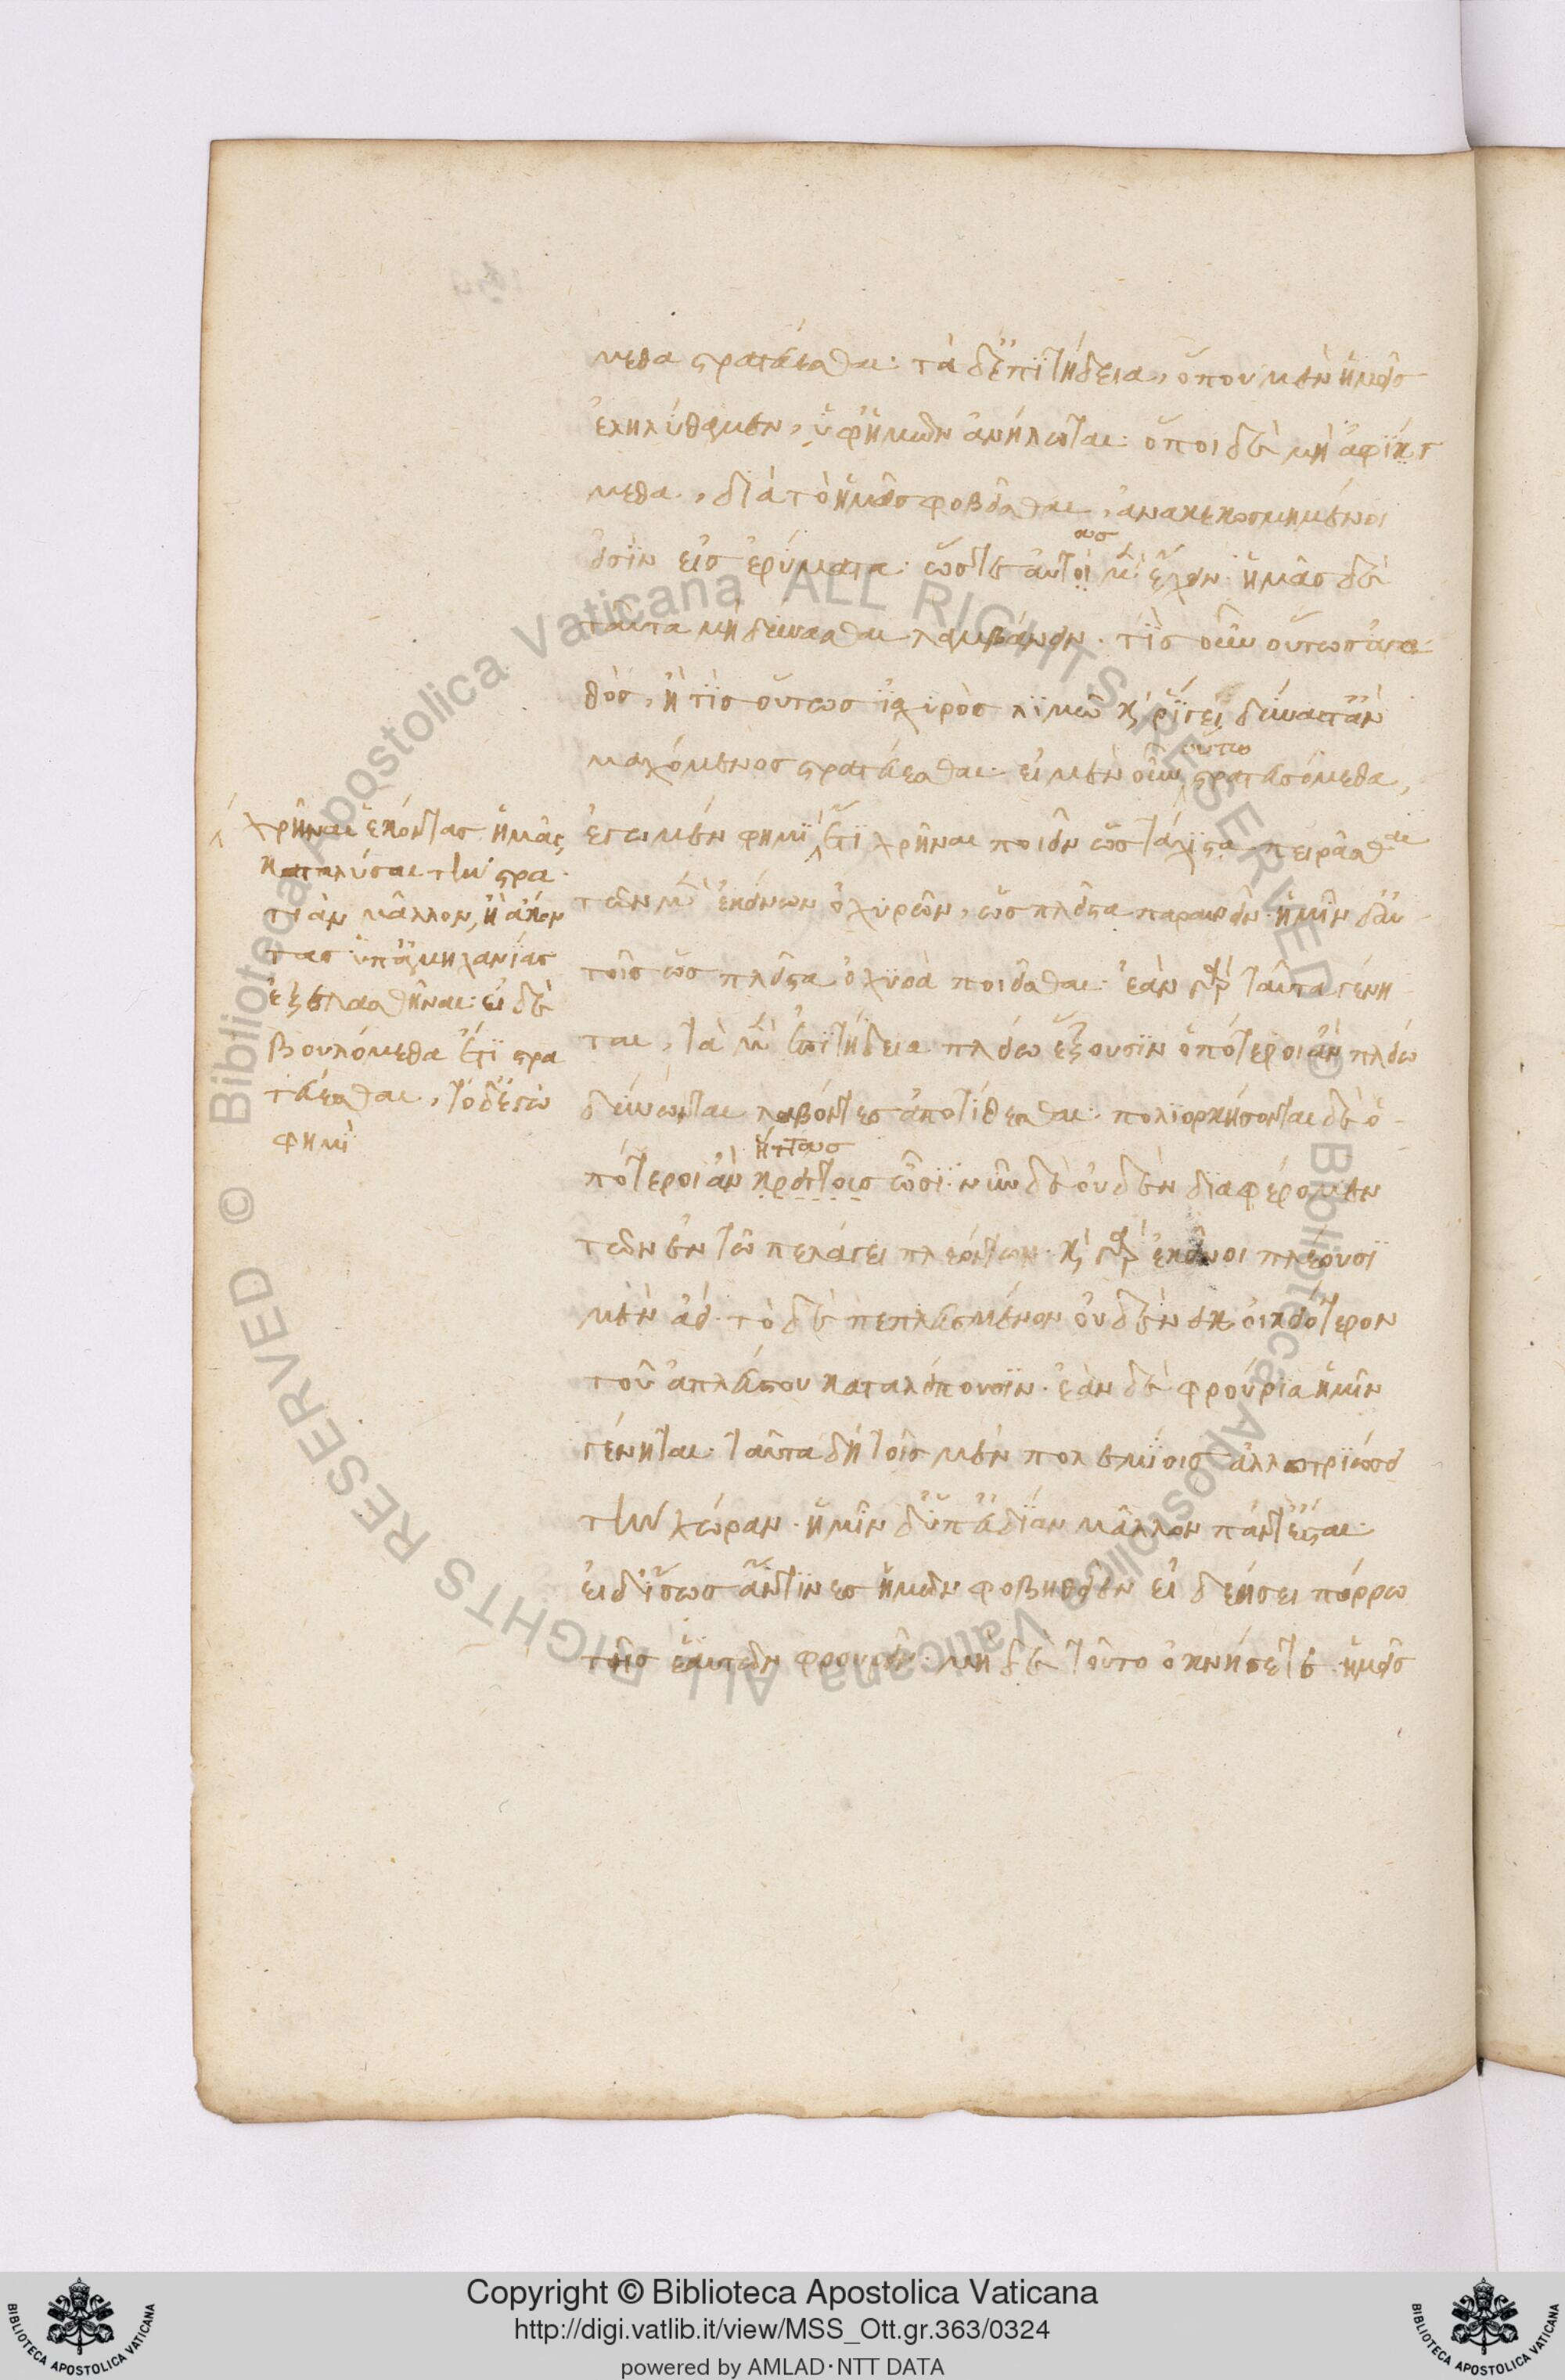 μεθα στρατεύεσθαι· τὰ δ' ἐπιτήδεια, ὅπου μὲν ἡμεῖς
ἐληλύθαμεν, ὑφ' ἡμῶν ἀνήλωται· ὅποι δὲ μὴ ἀφίγ
μεθα, διὰ τὸ ἡμᾶς φοβεῖσθαι, ἀνακεκοσμημένοι
εἰσὶν εἰς ἐρύματα· ὥστε αὐτοὶ μὲν ἔχειν ἡμᾶς δὲ
ους
ταῦτα μὴ δύνασθαι λαμβάνειν· τίς οὖν οὕτως ἀγα
θὸς, ἢ τίς οὕτως ἰσχυρὸς λιμῷ καὶ ῥίγει δύναιτ' ἂν
μαχόμενος στρατεύεσθαι· εἰ μὲν οὖν στρατευσόμεθα,
οὕτω
ἐγὼ μέν φημι ἔτι χρῆναι ποιεῖν ὡς τάχιστα πειρᾶσθαι
τῶν μὲν ἐκείνων ὀχυρῶν, ὡς πλεῖστα παραιρεῖν· ἡμῖν δ' αὐ
τοῖς ὡς πλεῖστα ὀχυρὰ ποιεῖσθαι· ἐὰν γὰρ ταῦτα γένη
ται, τὰ μὲν ἐπιτήδεια πλείω ἕξουσιν ὁπότεροι ἂν πλείω
δύνωνται λαβόντες ἀποτίθεσθαι· πολιορκήσονται δὲ ὁ
πότεροι ἂν κρείττους ὦσι· νῦν δὲ οὐδὲν διαφέρομεν
ἥττους
τῶν ἐν τῷ πελάγει πλεόντων· καὶ γὰρ ἐκεῖνοι πλέουσι
μὲν ἀεί· τὸ δὲ πεπλευσμένον οὐδὲν οἰκειότερον
τοῦ ἀπλεύστου καταλείπουσιν· ἐὰν δὲ φρούρια ἡμῖν
γένηται· ταῦτα δὴ τοῖς μὲν πολεμίοις ἀλλοτριώσει
τὴν χώραν· ἡμῖν δ' ὑπ' εὐδίαν μᾶλλον πάντ' ἔσται·
εἰ δ' ἴσως ἄν τινες ἡμῶν φοβηθεῖεν εἰ δεήσει πόρρω
τῆς ἑαυτῶν φρουρεῖν· μηδὲ τοῦτο ὀκνήσετε· ἡμεῖς
χρῆναι ἑκόντας ἡμᾶς
καταλῦσαι τὴν στρα
τιὰν μᾶλλον, ἢ ἄκον
τας ὑπ' ἀμηχανίας
ἐξελασθῆναι· εἰ δὲ
βουλόμεθα ἔτι στρα
τεύεσθαι, τόδ' ἐγώ
φημι
Copyright © Biblioteca Apostolica Vaticana
http://digi.vatlib.it/view/MSS_Ott.gr.363/0324
powered by AMLAD·NTT DATA
BIBLIOTECA APOSTOLICA VATICANA
BIBLIOTECA APOSTOLICA VATICANA
© Biblioteca Apostolica Vaticana ALL RIGHTS RESERVED
© Biblioteca Apostolica Vaticana ALL RIGHTS RESERVED